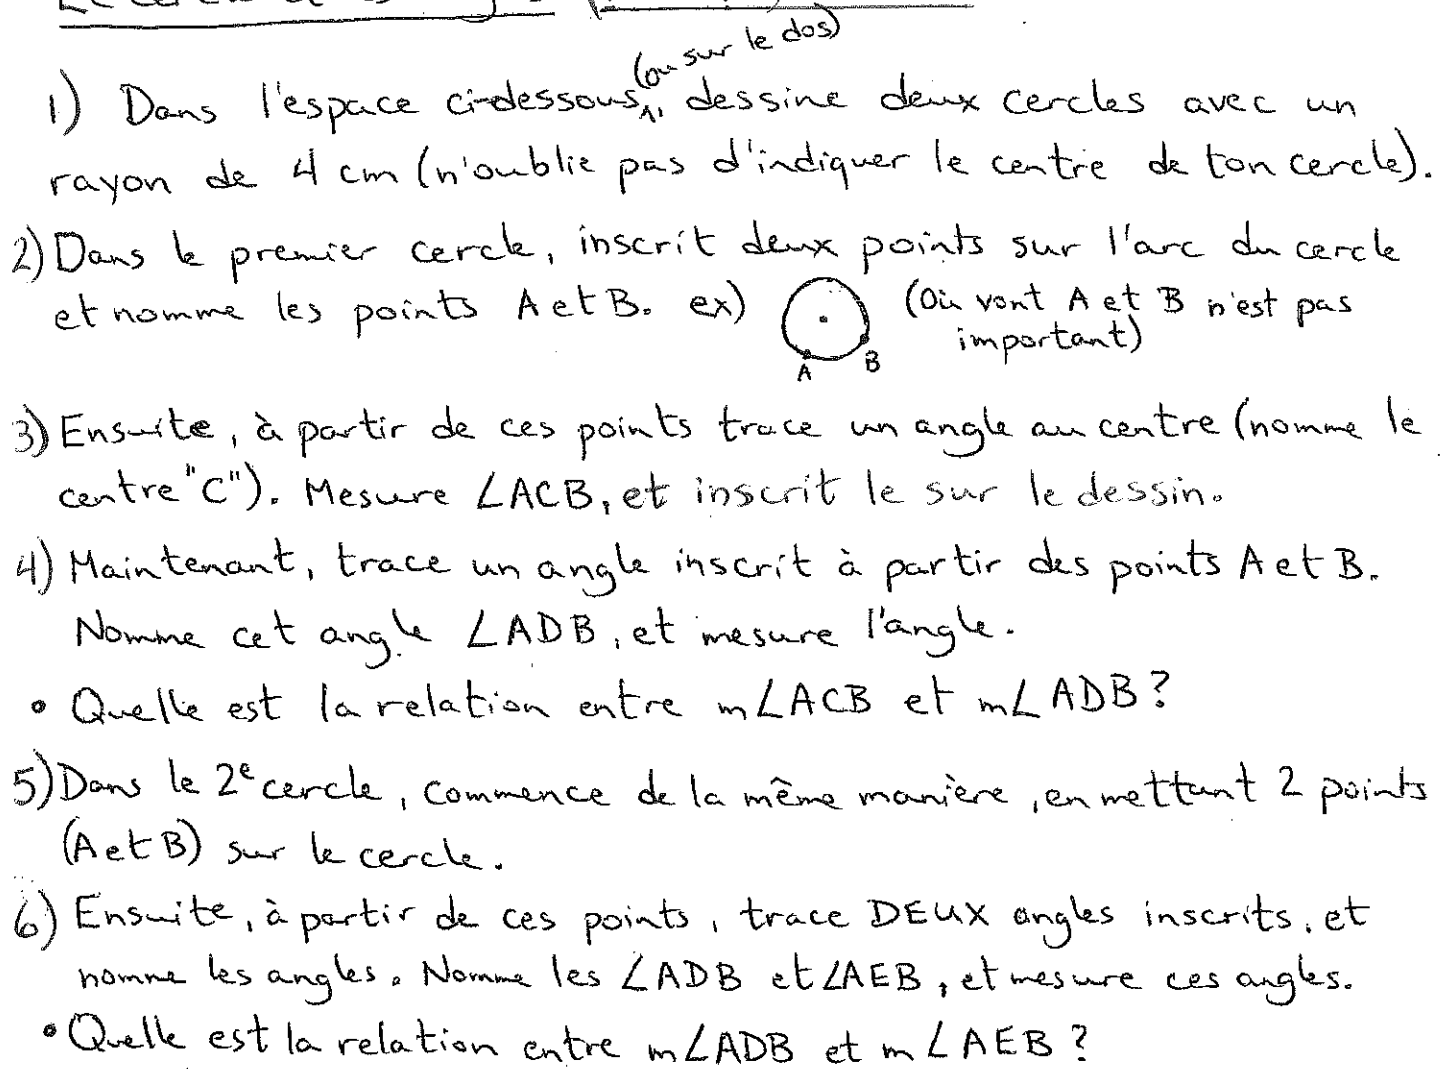 (ou sur le dos)
1) Dans l'espace ci-dessous, dessine deux cercles avec un
rayon de 4 cm (n'oublie pas d'indiquer le centre de ton cercle).
2) Dans le premier cercle, inscrit deux points sur l'arc du cercle
et nomme les points A et B. ex) (Où vont A et B n'est pas
important)
A B
3) Ensuite, à partir de ces points trace un angle au centre (nomme le
centre "C"). Mesure ∠ACB, et inscrit le sur le dessin.
4) Maintenant, trace un angle inscrit à partir des points A et B.
Nomme cet angle ∠ADB, et mesure l'angle.
• Quelle est la relation entre m∠ACB et m∠ADB?
5) Dans le 2e cercle, commence de la même manière, en mettant 2 points
(A et B) sur le cercle.
6) Ensuite, à partir de ces points, trace DEUX angles inscrits, et
nomme les angles. Nomme les ∠ADB et ∠AEB, et mesure ces angles.
• Quelle est la relation entre m∠ADB et m∠AEB?